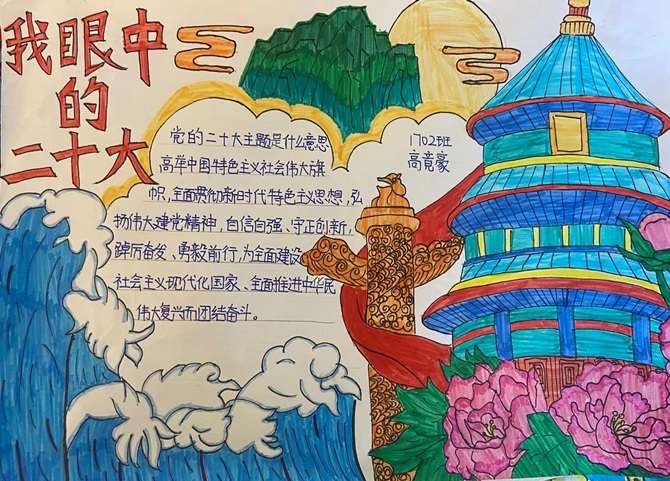 我眼中
的
二十大
党的二十大主题是什么意思
高举中国特色主义社会伟大旗
帜,全面贯彻新时代特色主义思想,弘
扬伟大建党精神,自信自强、守正创新,
踔厉奋发、勇毅前行,为全面建设
社会主义现代化国家、全面推进中华民
伟大复兴而团结奋斗。
1702班
高竟豪